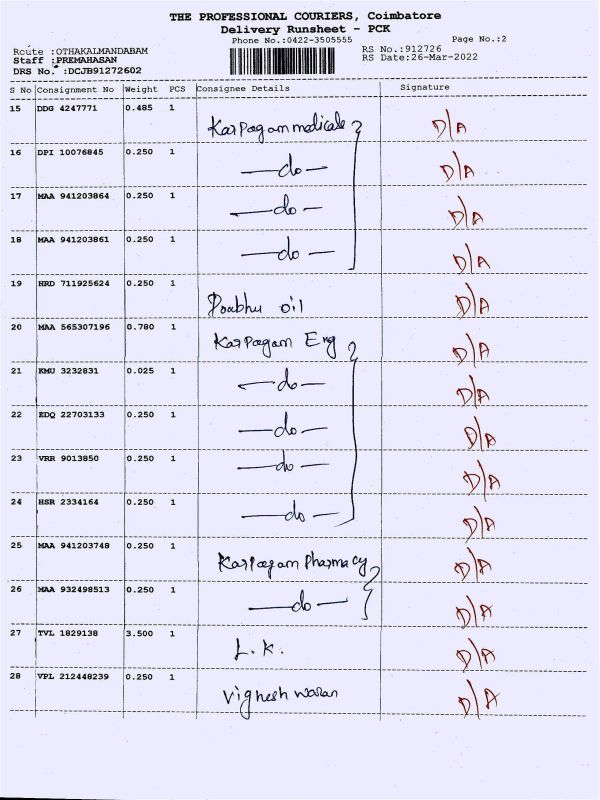 THE PROFESSIONAL COURIERS, Coimbatore
Delivery Runsheet - PCK
Phone No.:0422-3505555 Page No.:2
Route :OTHAKALMANDABAM RS No.:912726
Staff :PREMAHASAN RS Date:26-Mar-2022
DRS No. :DCJB91272602
S No Consignment No Weight PCS Consignee Details Signature
15 DDG 4247771 0.485 1 Karpagam medicals D/A
16 DPI 10076845 0.250 1 —do— D/A
17 MAA 941203864 0.250 1 —do— D/A
18 MAA 941203861 0.250 1 —do— D/A
19 HRD 711925624 0.250 1 Prabhu oil D/A
20 MAA 565307196 0.780 1 Karpagam Eng D/A
21 KMU 3232831 0.025 1 —do— D/A
22 EDQ 22703133 0.250 1 —do— D/A
23 VRR 9013850 0.250 1 —do— D/A
24 HSR 2334164 0.250 1 —do— D/A
25 MAA 941203748 0.250 1 Karpagam Pharmacy D/A
26 MAA 932498513 0.250 1 —do— D/A
27 TVL 1829138 3.500 1 L.K. D/A
28 VPL 212448239 0.250 1 Vignesh waran D/A